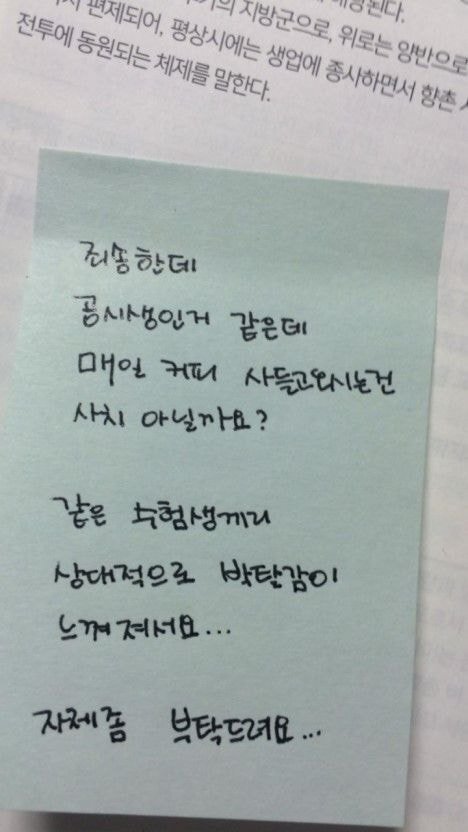 편제되어, 평상시에는 생업에 종사하면서 향촌
의 지방군으로, 위로는 양반으로
전투에 동원되는 체제를 말한다.
죄송한데
공시생인거 같은데
매일 커피 사들고와시는건
사치 아닐까요?
같은 수험생끼리
상대적으로 박탈감이
느껴져서요...
자제좀 부탁드려요...